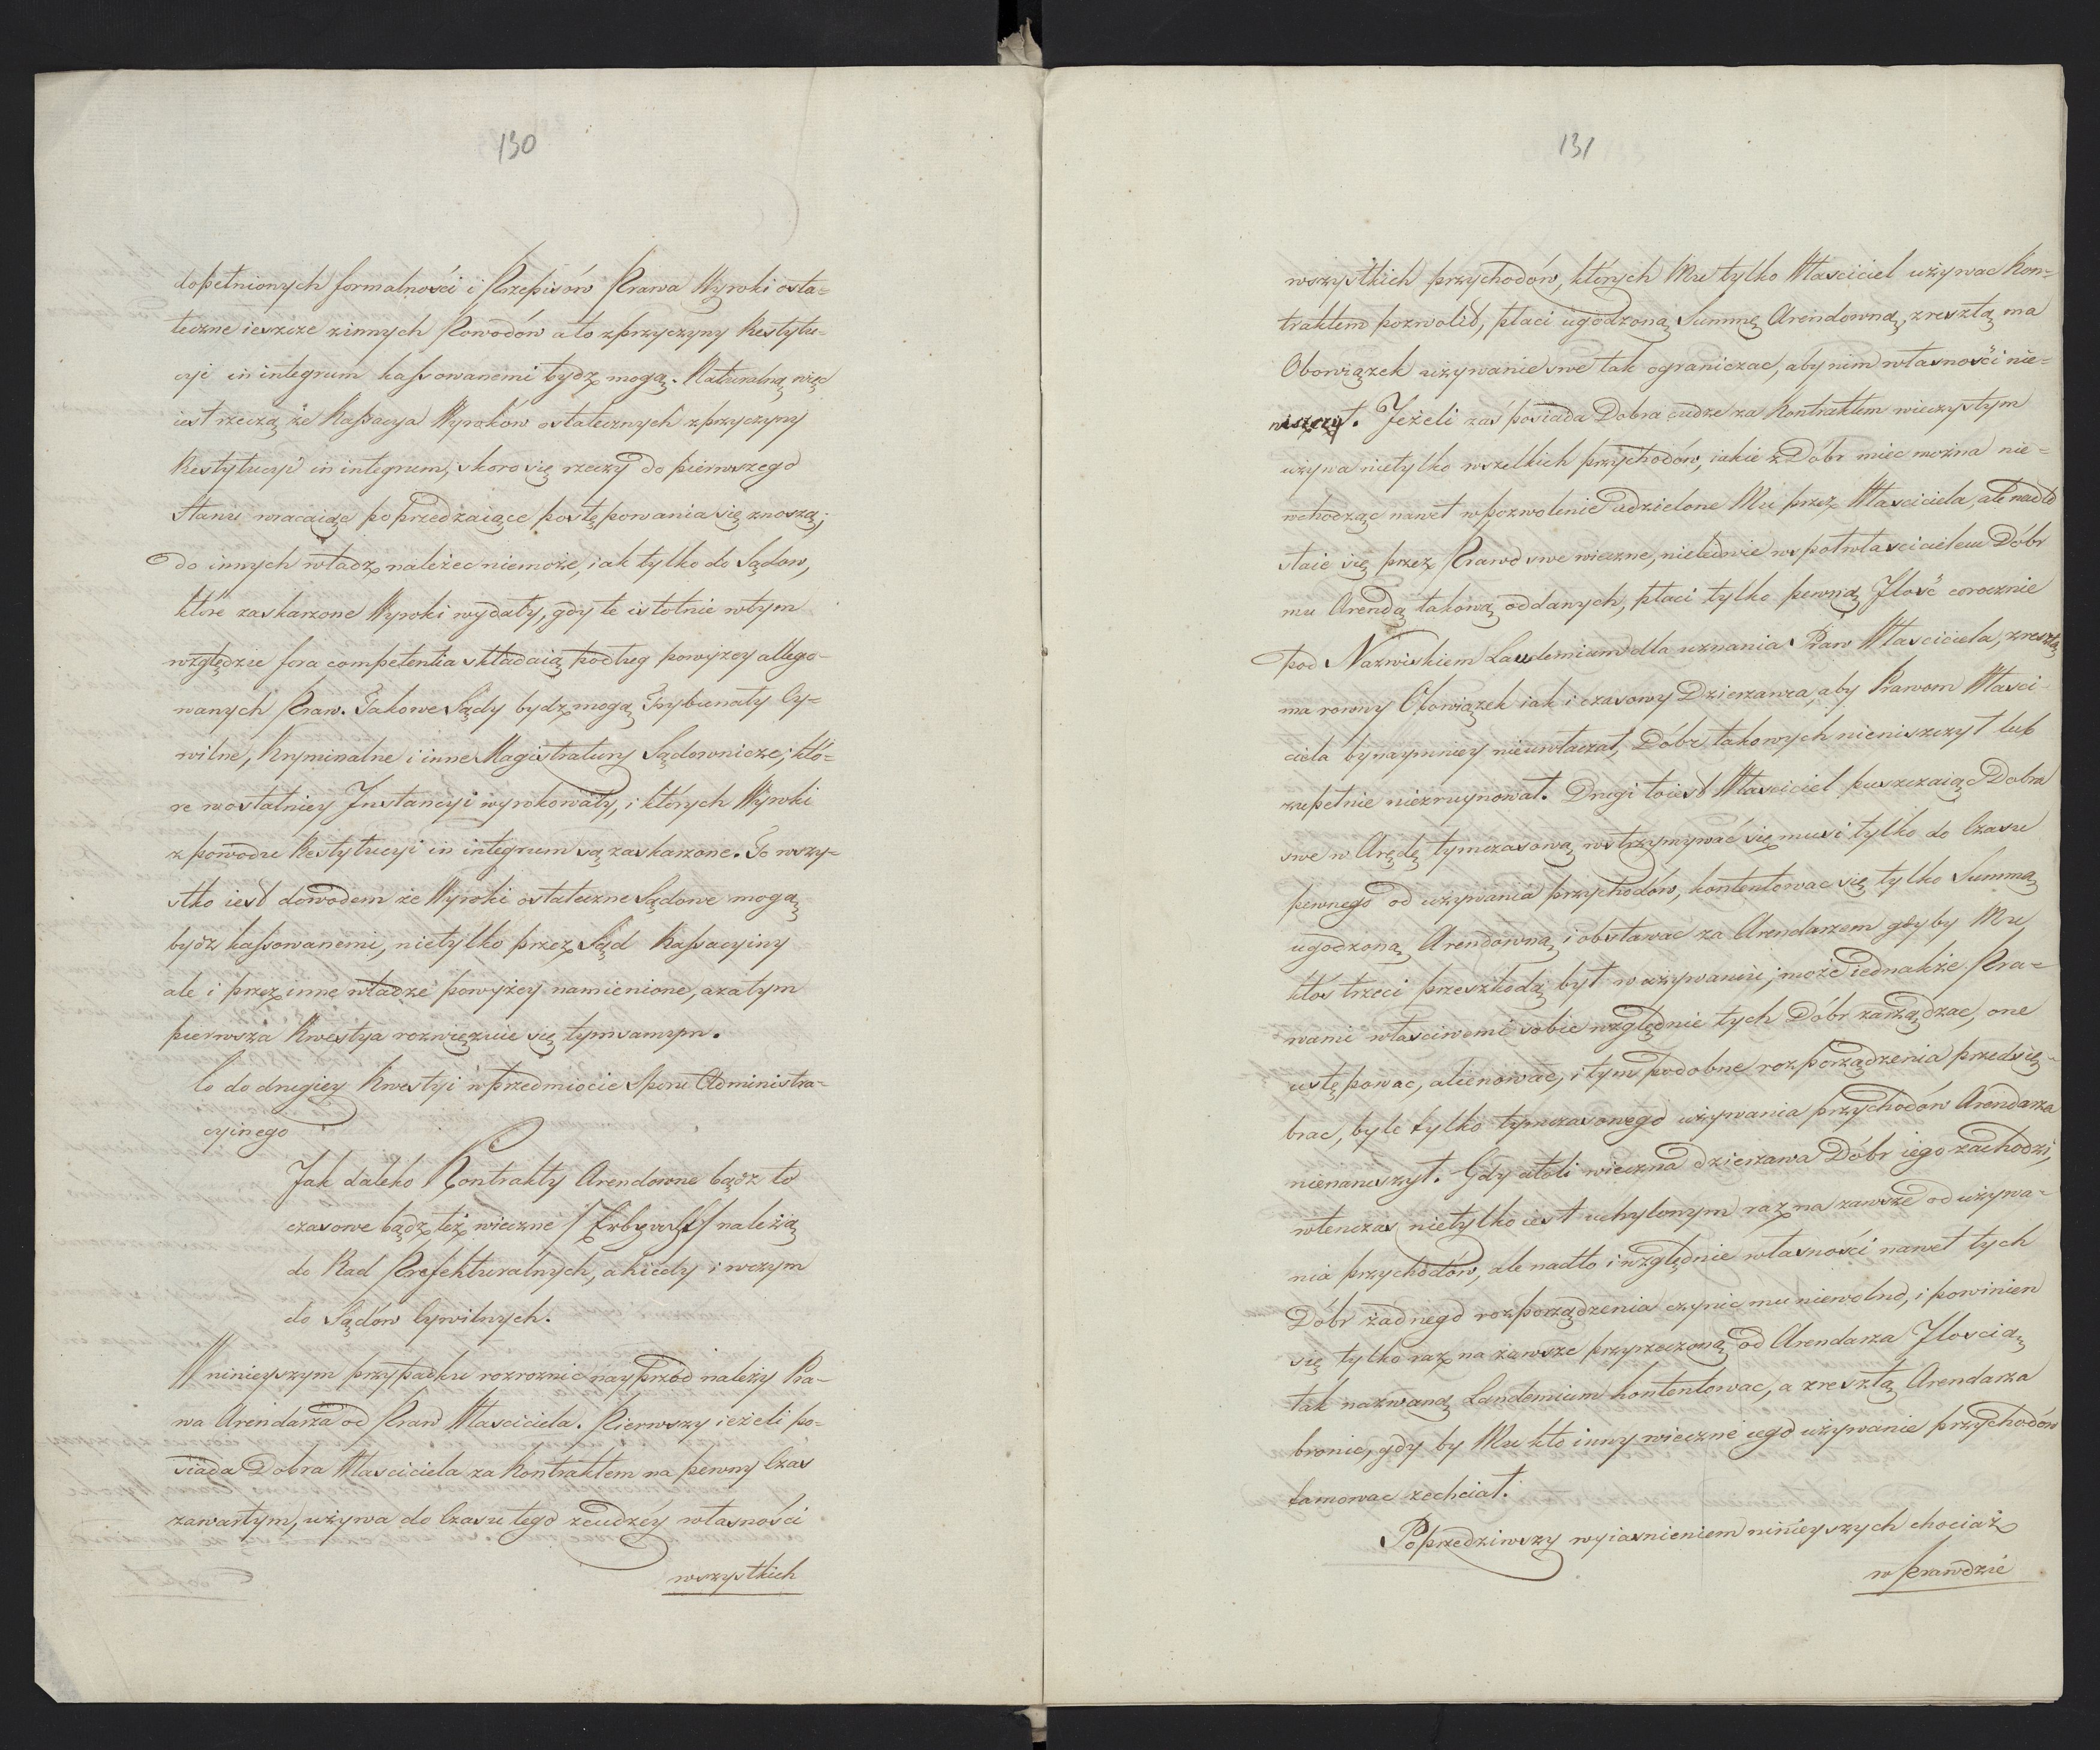 130
dopełnionych formalności i Przepisów Prawa Wyroki osta=
teczne ieszcze zinnych Powodów a to zprzyczyny Restytu=
cyi in integrum kassowanemi bydź mogą. Naturalną więc
iest rzeczą że Kassacya Wyroków ostatecznych z przyczyny
Restytucyi in integrum, skoro się rzeczy do pierwszego
Stanu wracaiąc poprzedzaiące postępowania się znoszą;
do innych władz należec niemoże, iak tylko do Sądow,
które zaskarżone Wyroki wydały, gdy te istotnie wtym
względzie fora competentia składaią podług powyzey allego-
wanych Praw. Takowe Sądy bydź mogą Trybunały Cy=
wilne, Kryminalne i inne Magistratury Sądownicze; któ=
re wostatniey Instancyi wyrokowały, i których Wyroki
z powodu Restytucyi in integrum są zaskarzone. To wszy=
stko iest dowodem że Wyroki ostateczne Sądowe mogą
bydź kassowanemi, nietylko przez Sąd Kassacyiny
ale i przez inne władze powyżey namienione, azatym
pierwsza Kwestya rozwięzuie się tymsamym.
Co do drugiey Kwestyi w przedmiocie Sporu Administra-
cyinego
Jak daleko Kontrakty Arendowne bądź to
czasowe bądz też wieczne / Erbpacht / należą
do Rad Prefekturalnych, a kiedy i wczym
do Sądów Cywilnych.
W ninieyszym przypadku rozroznic nayprzód należy Pra-
wa Arendarza od Praw Własciciela. Pierwszy ieżeli po-
siada Dobra Własciciela za Kontraktem na pewny Czas
zawartym, używa do Czasu tego z cudzéy własności
wszystkich
131
wszystkich przychodów, których Mu tylko Własciciel używac Kon=
traktem pozwolił, płaci ugodzoną Summę Arendowną, zresztą ma
Obowiązek używanie swe tak ograniczac, aby nim własności nie=
niszczył. Jeżeli zaś posiada Dobra cudze za Kontraktem wieczystym
używa nietylko wszelkich przychodów, iakie z Dóbr miec można nie=
wchodząc nawet w pozwolenie udzielone Mu przez Własciciela, ale nadto
staie się przez Prawo swe wieczne, nieledwie wspołwłascicielem Dóbr
mu Arendą takową oddanych, płaci tylko pewną Ilość corocznie
pod Nazwiskiem Laudemium dla uznania Praw Własciciela, zresztą
ma rowny Obowiązek iak i czasowy Dzierzawca, aby Prawom Własci-
ciela bynaymniey nieuwłaczał, Dóbr takowych nieniszczył lub
zupełnie niezruynował. Drugi toiest Własciciel puszczaiąc Dobra
swe w Arędę tymczasową wstrzymywać się musi tylko do Czasu
pewnego od używania przychodów, kontentowac się tylko Summą
ugodzoną Arendowną i obstawac za Arendarzem gdyby Mu
ktos trzeci przeszkodą był w używaniu; może iednakże Pra=
wami własciwemi sobie względnie tych Dóbr zarządzac, one
ustępowac, alienowac, i tym podobne rozporządzenia przedsię-
brac, byle tylko tymczasowego używania przychodów Arendarza
nienaruszył. Gdy atoli wieczna dzierzawa Dóbr iego zachodzi,
wtenczas nietylko iest uchylonym raz na zawsze od używa-
nia przychodów, ale nadto i względnie własności nawet tych
Dóbr żadnego rozporządzenia czynic mu niewolno, i powinien
się tylko raz na zawsze przyrzeczoną od Arendarza Iloscią
tak nazwaną Laudemium kontentowac, a zresztą Arendarza
bronic, gdy by Mu kto inny wieczne iego używanie przychodów
tamowac zechciał.
Poprzedziwszy wyiasnieniem ninieyszych chociaż
w prawdzie